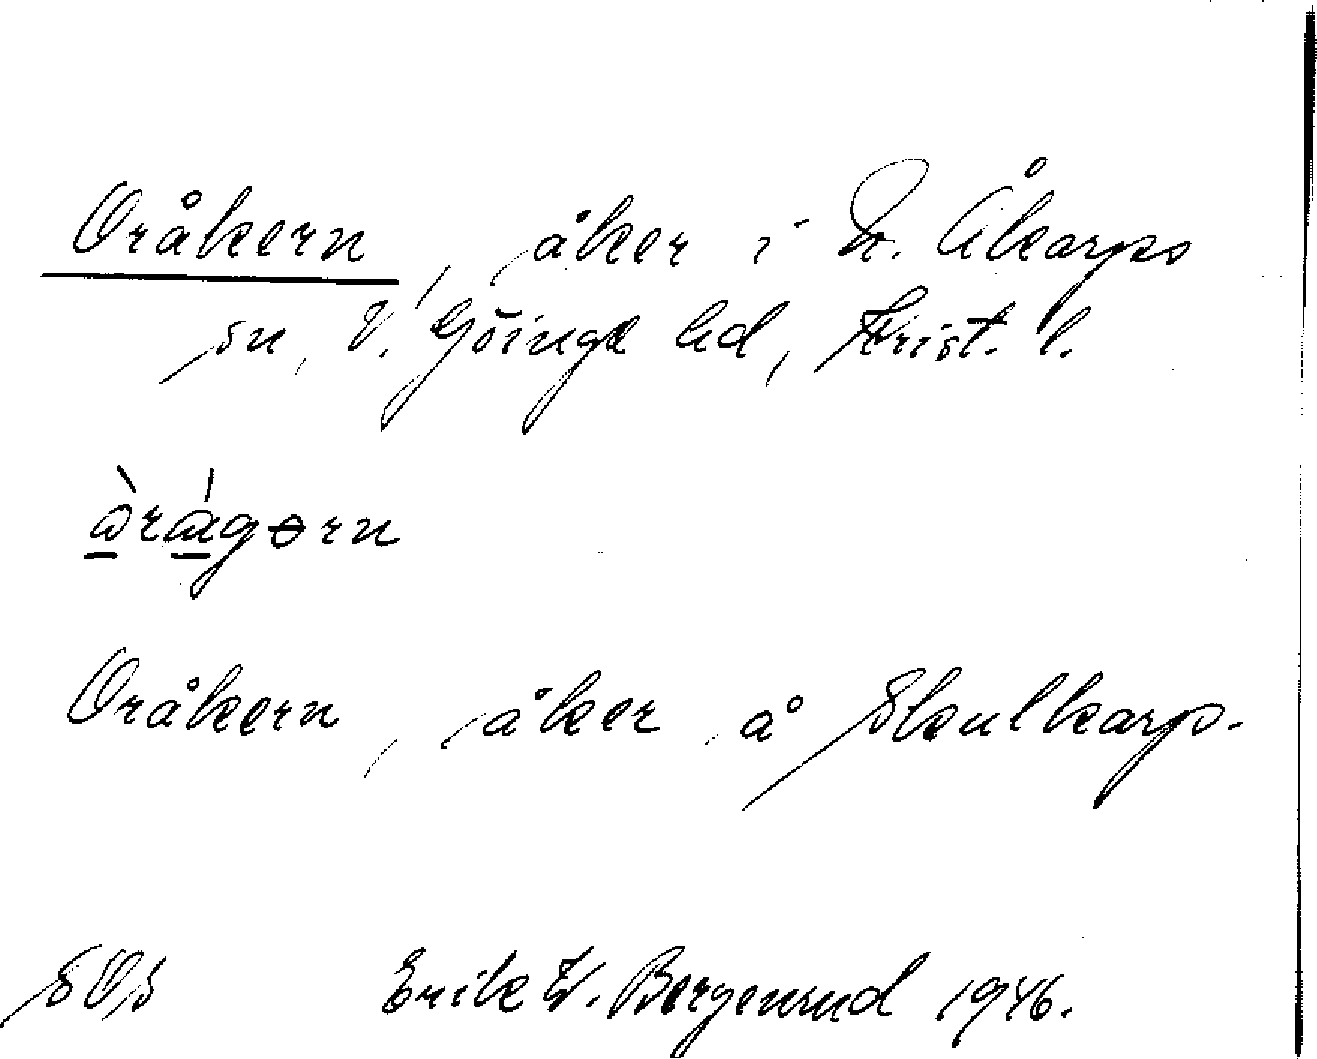 Oråkern, åker i N. Åkarps
sn, V. Göinge hd, Krist. l.
Oråkern, åker å Skulkarp.
Erik W. Bergenrud 1946.